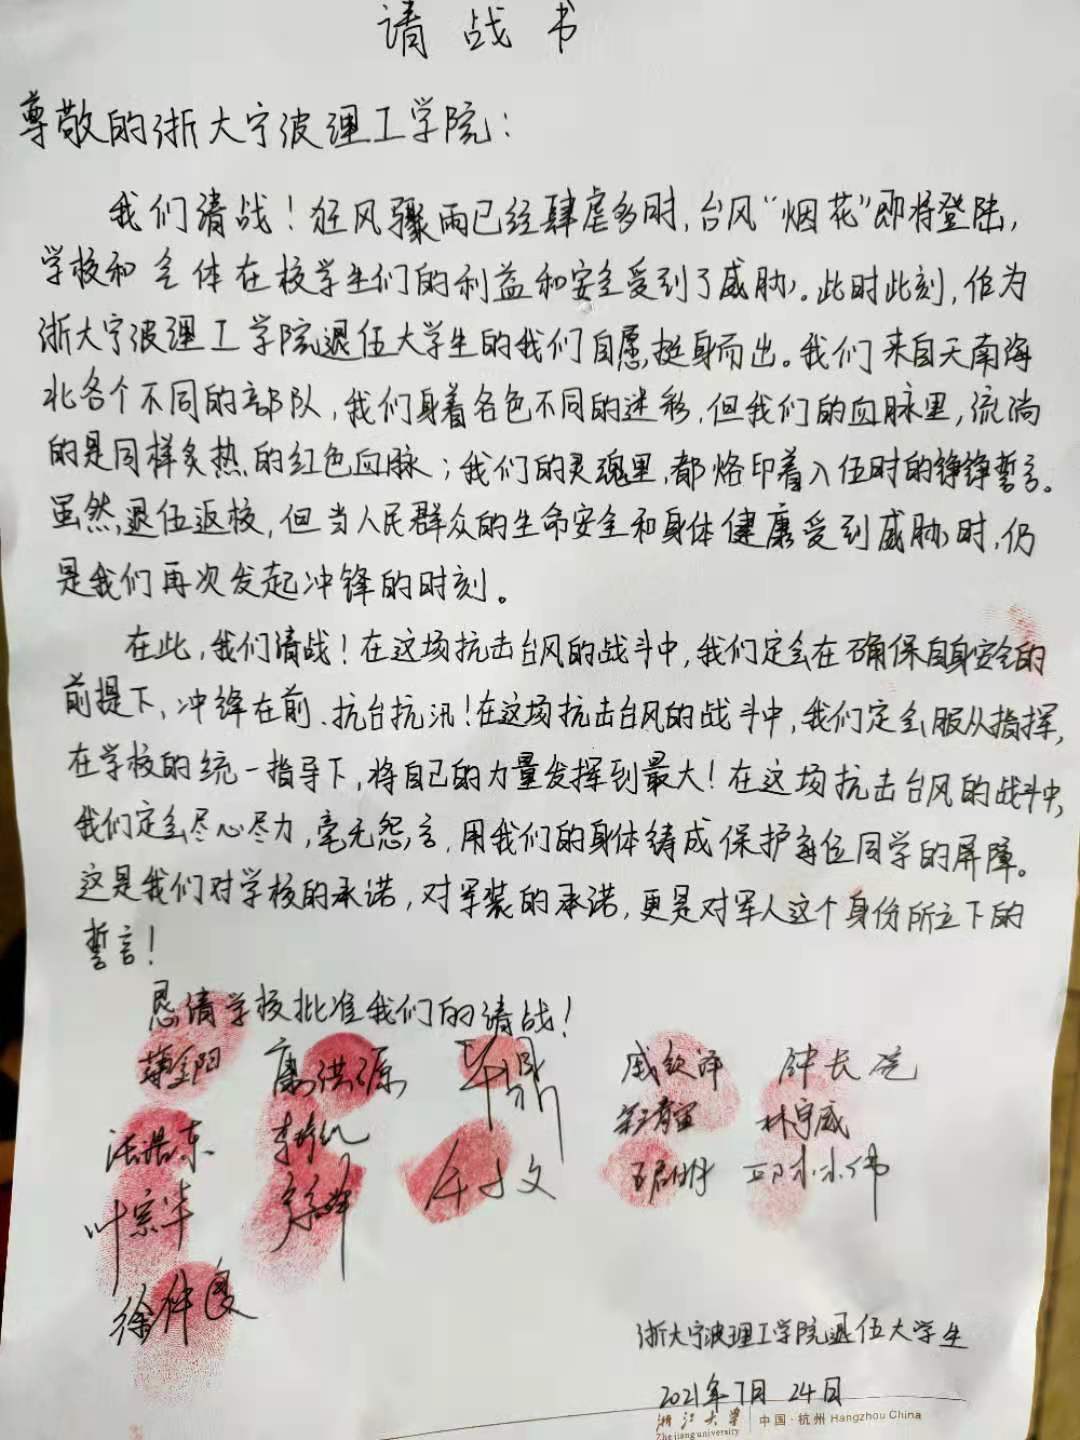 请战书
尊敬的浙大宁波理工学院：
我们请战！狂风骤雨已经肆虐多时，台风“烟花”即将登陆，
学校和全体在校学生们的利益和安全受到了威胁。此时此刻，作为
浙大宁波理工学院退伍大学生的我们自愿挺身而出。我们来自天南海
北各个不同的部队，我们身着各色不同的迷彩，但我们的血脉里，流淌
的是同样炙热的红色血脉；我们的灵魂里，都烙印着入伍时的铮铮誓言。
虽然退伍返校，但当人民群众的生命安全和身体健康受到威胁时，仍
是我们再次发起冲锋的时刻。
在此，我们请战！在这场抗击台风的战斗中，我们定会在确保自身安全的
前提下，冲锋在前、抗台抗汛！在这场抗击台风的战斗中，我们定会服从指挥，
在学校的统一指导下，将自己的力量发挥到最大！在这场抗击台风的战斗中，
我们定会尽心尽力，毫无怨言，用我们的身体铸成保护每位同学的屏障。
这是我们对学校的承诺，对军装的承诺，更是对军人这个身份所立下的
誓言！
恳请学校批准我们的请战！
康洪源 戚钦泽
汪浩东 林宇威
叶宗华
徐仲良
浙大宁波理工学院退伍大学生
2021年7月24日
浙江大学 中国·杭州 Hangzhou China
Zhejiang university